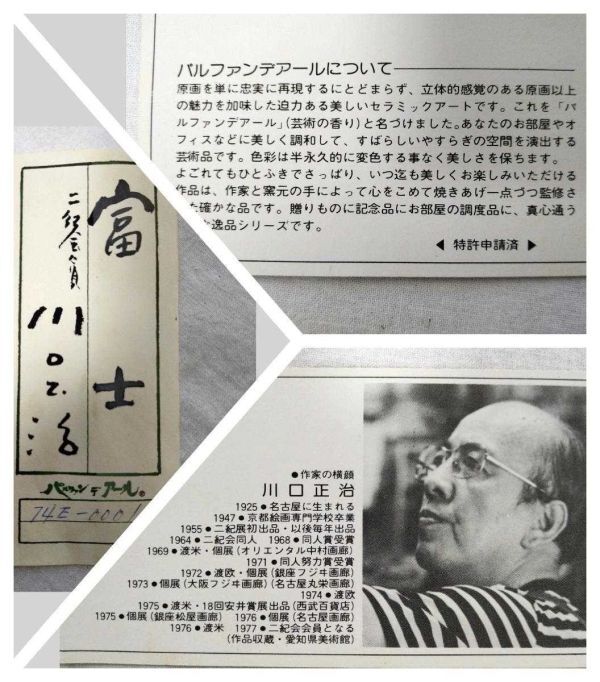 パルファンデアールについて
原画を単に忠実に再現するにとどまらず、立体的感覚のある原画以上
の魅力を加味した迫力ある美しいセラミックアートです。これを「パ
ルファンデアール」(芸術の香り)と名づけました。あなたのお部屋やオ
フィスなどに美しく調和して、すばらしいやすらぎの空間を演出する
芸術品です。色彩は半永久的に変色する事なく美しさを保ちます。
よごれてもひとふきでさっぱり、いつ迄も美しくお楽しみいただける
作品は、作家と窯元の手によって心をこめて焼きあげ一点づつ監修さ
た確かな品です。贈りものに記念品にお部屋の調度品に、真心通う
逸品シリーズです。
◀ 特許申請済 ▶
富士
二紀会会員
川口正治
パルファンデアール®
74E-0001
●作家の横顔
川口正治
1925●名古屋に生まれる
1947●京都絵画専門学校卒業
1955●二紀展初出品・以後毎年出品
1964●二紀会同人 1968●同人賞受賞
1969●渡米・個展(オリエンタル中村画廊)
1971●同人努力賞受賞
1972●渡欧・個展(銀座フジヰ画廊)
1973●個展(大阪フジヰ画廊)(名古屋丸栄画廊)
1974●渡欧
1975●渡米・18回安井賞展出品(西武百貨店)
1975●個展(銀座松屋画廊) 1976●個展(名古屋画廊)
1976●渡米 1977●二紀会会員となる
(作品収蔵・愛知県美術館)